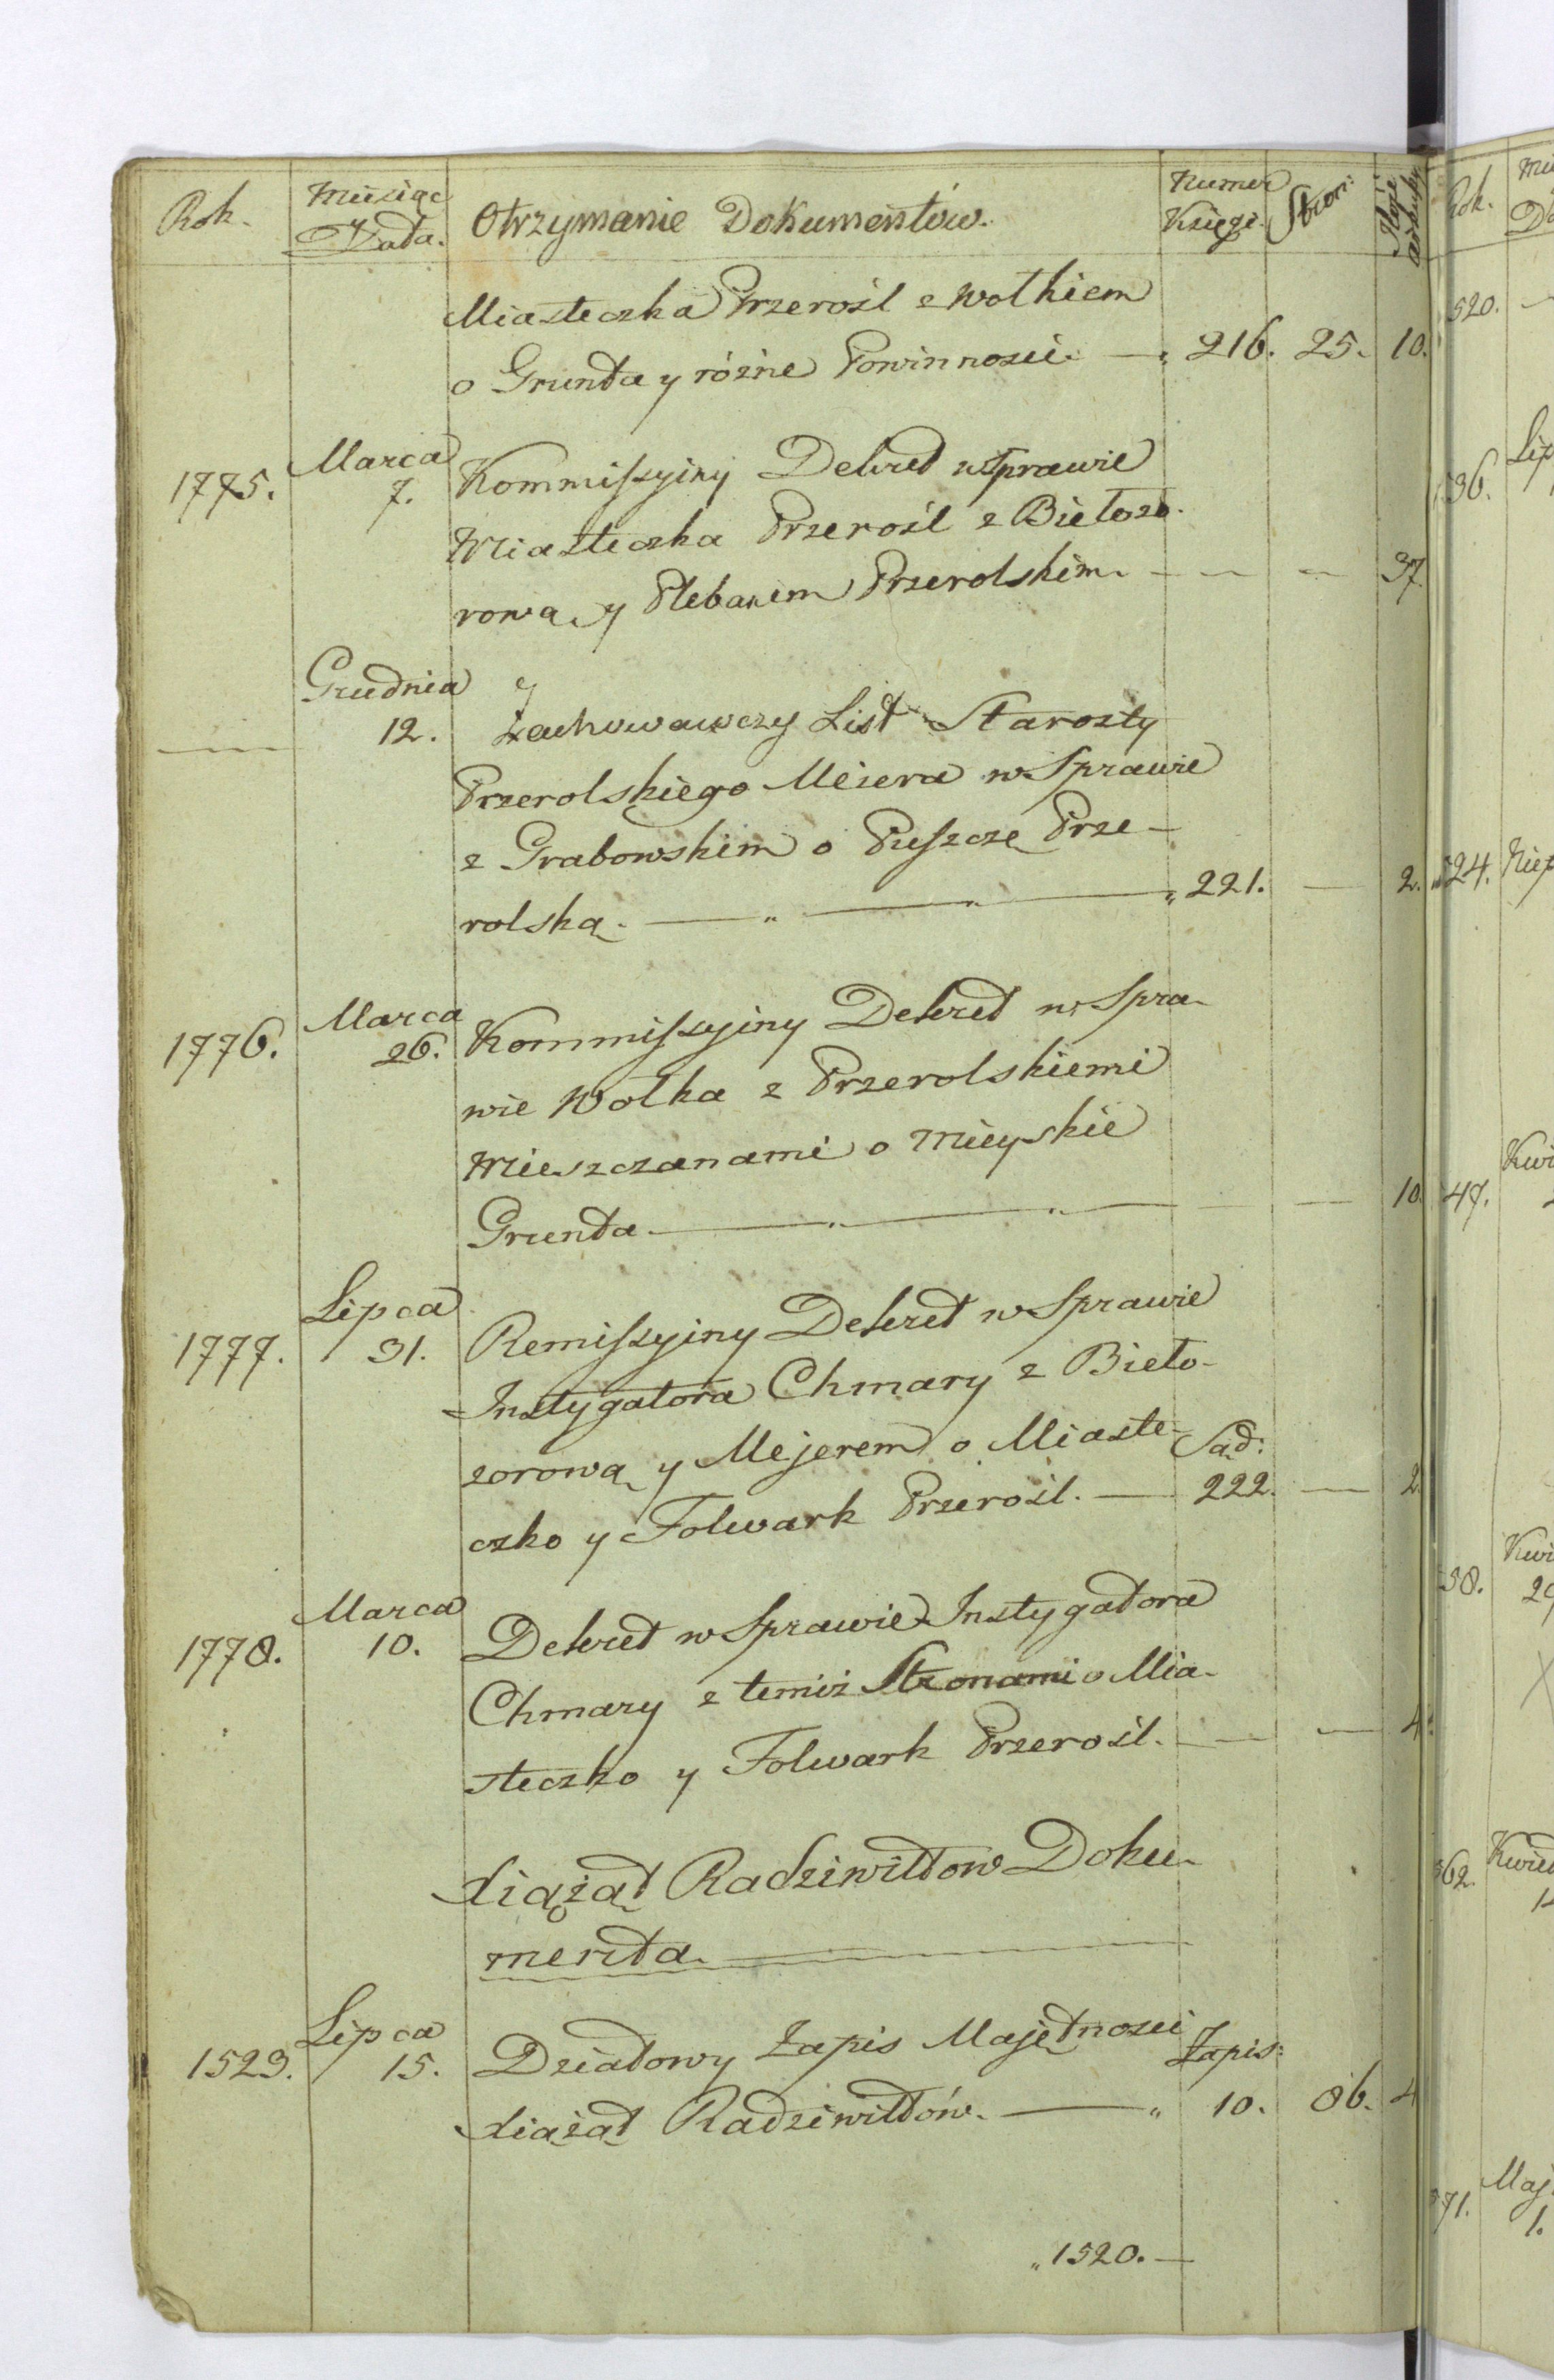 Rok. Miesiąc Data. Otrzymanie Dokumentów. Numer Księgi. Stron: Ilość arkuszy
Miasteczka Przerośl z Wołkiem
o Grunta y różne Powinnosci. — 216. 25. 10.
1775. Marca 7. Kommissyiny Dekret w Sprawie
Miasteczka Przerośl z Biełozo-
rową y Plebanem Przerolskim. — — — 37.
— Grudnia 12. Zachowawczy List Starosty
Przerolskiego Meiera w Sprawie
z Grabowskim o Puszczę Prze-
rolską. — " — " — " 221. — 2.
1776. Marca 26. Kommissyiny Dekret w Spra-
wie Wołka z Przerolskiemi
Mieszczanami o Mieyskie
Grunta. — " — " — — — 10.
1777. Lipca 31. Remissyiny Dekret w Sprawie
Instygatora Chmary z Bieło-
zorową y Mejerem o Miaste- Sąd:
czko y Folwark Przerośl. — 222. — 2.
1778. Marca 10. Dekret w Sprawie Instygatora
Chmary z temiż Stronami o Mia-
steczko y Folwark Przerośl. — — 4.
Xiążąt Radziwiłłow Doku-
menta.
1523. Lipca 15. Działowy Zapis Majętnosci Zapis:
Xiążąt Radziwiłłów. — " 10. 86. 4
" 1520. —
Rok.
520.
36. Lip
524.
47. Kwi
58. Kwi
562.
71. Maj
1.